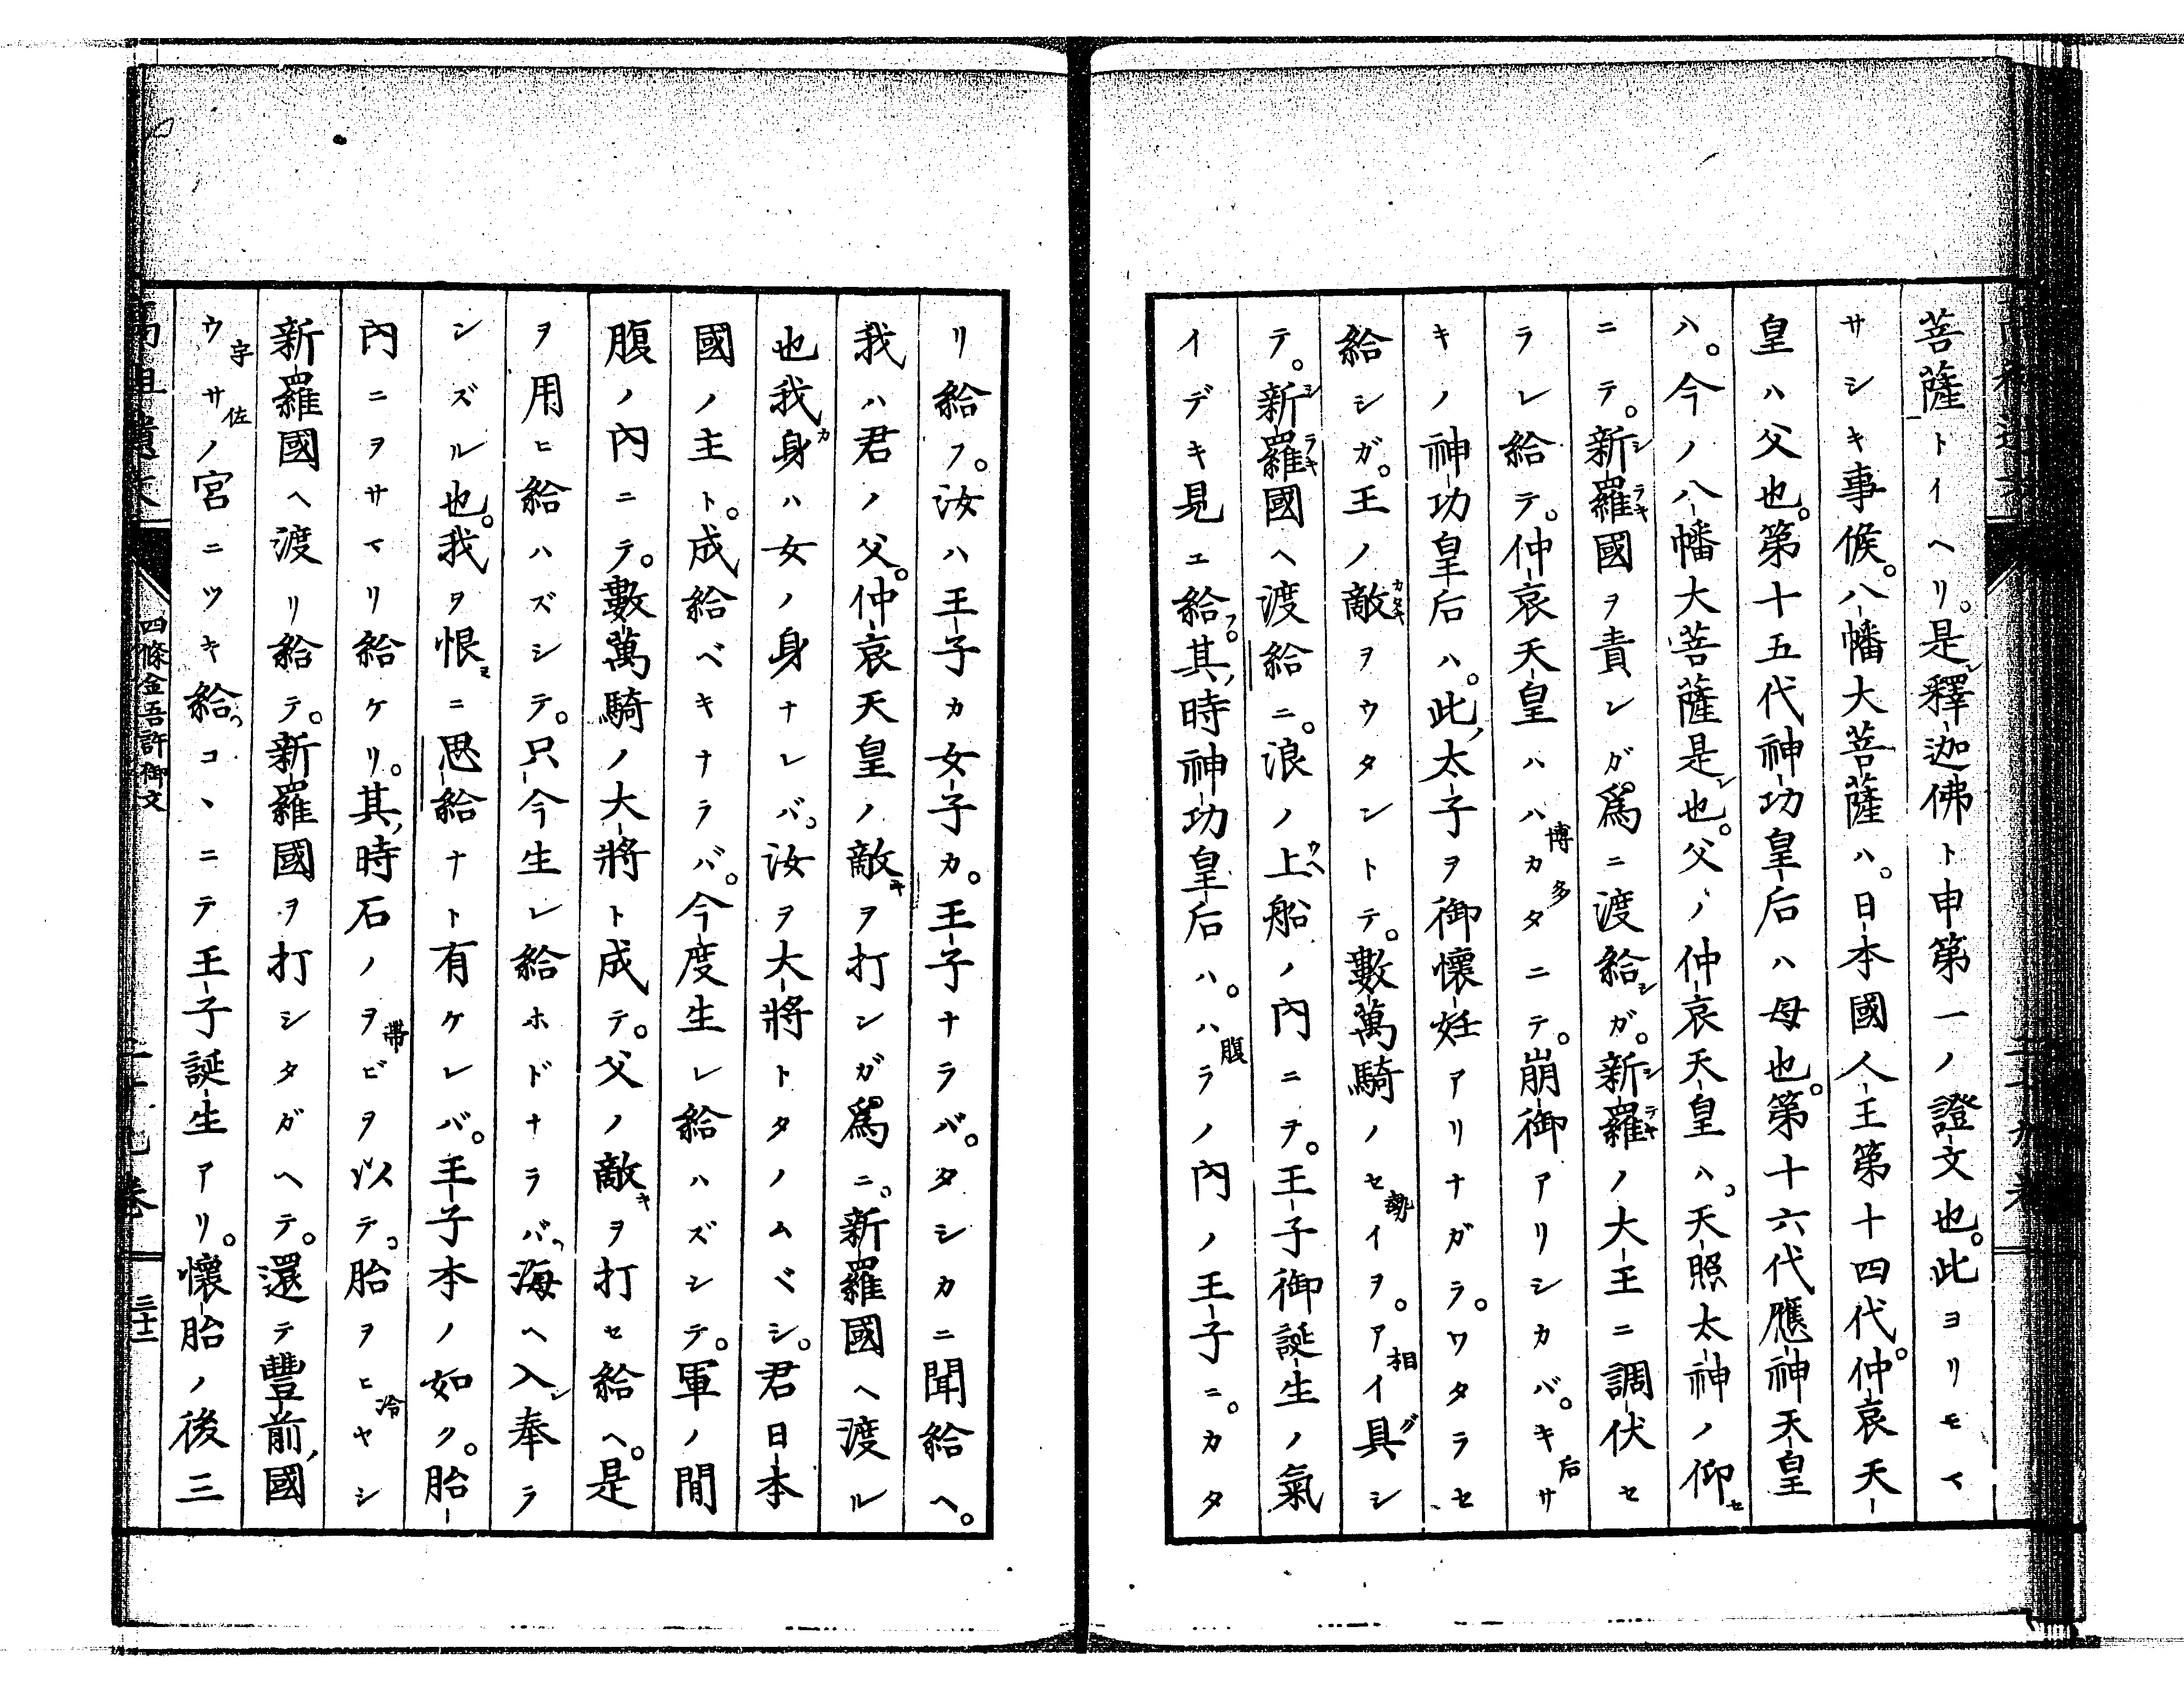 菩薩トイヘリ。是釋迦佛ト申第一ノ證文也。此ヨリモマ
サシキ事候。八幡大菩薩ハ。日本國人王第十四代。仲哀天
皇ハ父也。第十五代神功皇后ハ母也。第十六代應神天皇
ハ。今ノ八幡大菩薩是也。父ノ仲哀天皇ハ。天照太神ノ仰セ
ニテ。新羅國ヲ責ンガ爲ニ渡給シガ。新羅ノ大王ニ調伏セ
ラレ給テ。仲哀天皇ハハカタニテ。崩御アリシカバ。キサ
キノ神功皇后ハ。此太子ヲ御懷妊アリナガラ。ワタラセ
給シガ。王ノ敵ヲウタントテ。數萬騎ノセイヲ。アイ具シ
テ。新羅國ヘ渡給ニ。浪ノ上船ノ內ニテ。王子御誕生ノ氣
イデキ見ユ給フ。其時神功皇后ハ。ハラノ內ノ王子ニ。カタ
リ給フ。汝ハ王子カ女子カ。王子ナラバ。タシカニ聞給ヘ。
我ハ君ノ父。仲哀天皇ノ敵ヲ打ンガ爲ニ。新羅國ヘ渡ル
也我身ハ女ノ身ナレバ。汝ヲ大將トタノムベシ。君日本
國ノ主ト。成給ベキナラバ。今度生レ給ハズシテ。軍ノ間
腹ノ內ニテ。數萬騎ノ大將ト成テ。父ノ敵ヲ打セ給ヘ。是
ヲ用ヒ給ハズシテ。只今生レ給ホドナラバ。海ヘ入奉ラ
ンズル也。我ヲ恨ニ思給ナト有ケレバ。王子本ノ如ク。胎
內ニヲサマリ給ケリ。其時石ノヲビヲ以テ。胎ヲヒヤシ
新羅國ヘ渡リ給テ。新羅國ヲ打シタガヘテ。還テ豐前國
ウサノ宮ニツキ給。コヽニテ王子誕生アリ。懷胎ノ後三
四條金吾許御文
三十二